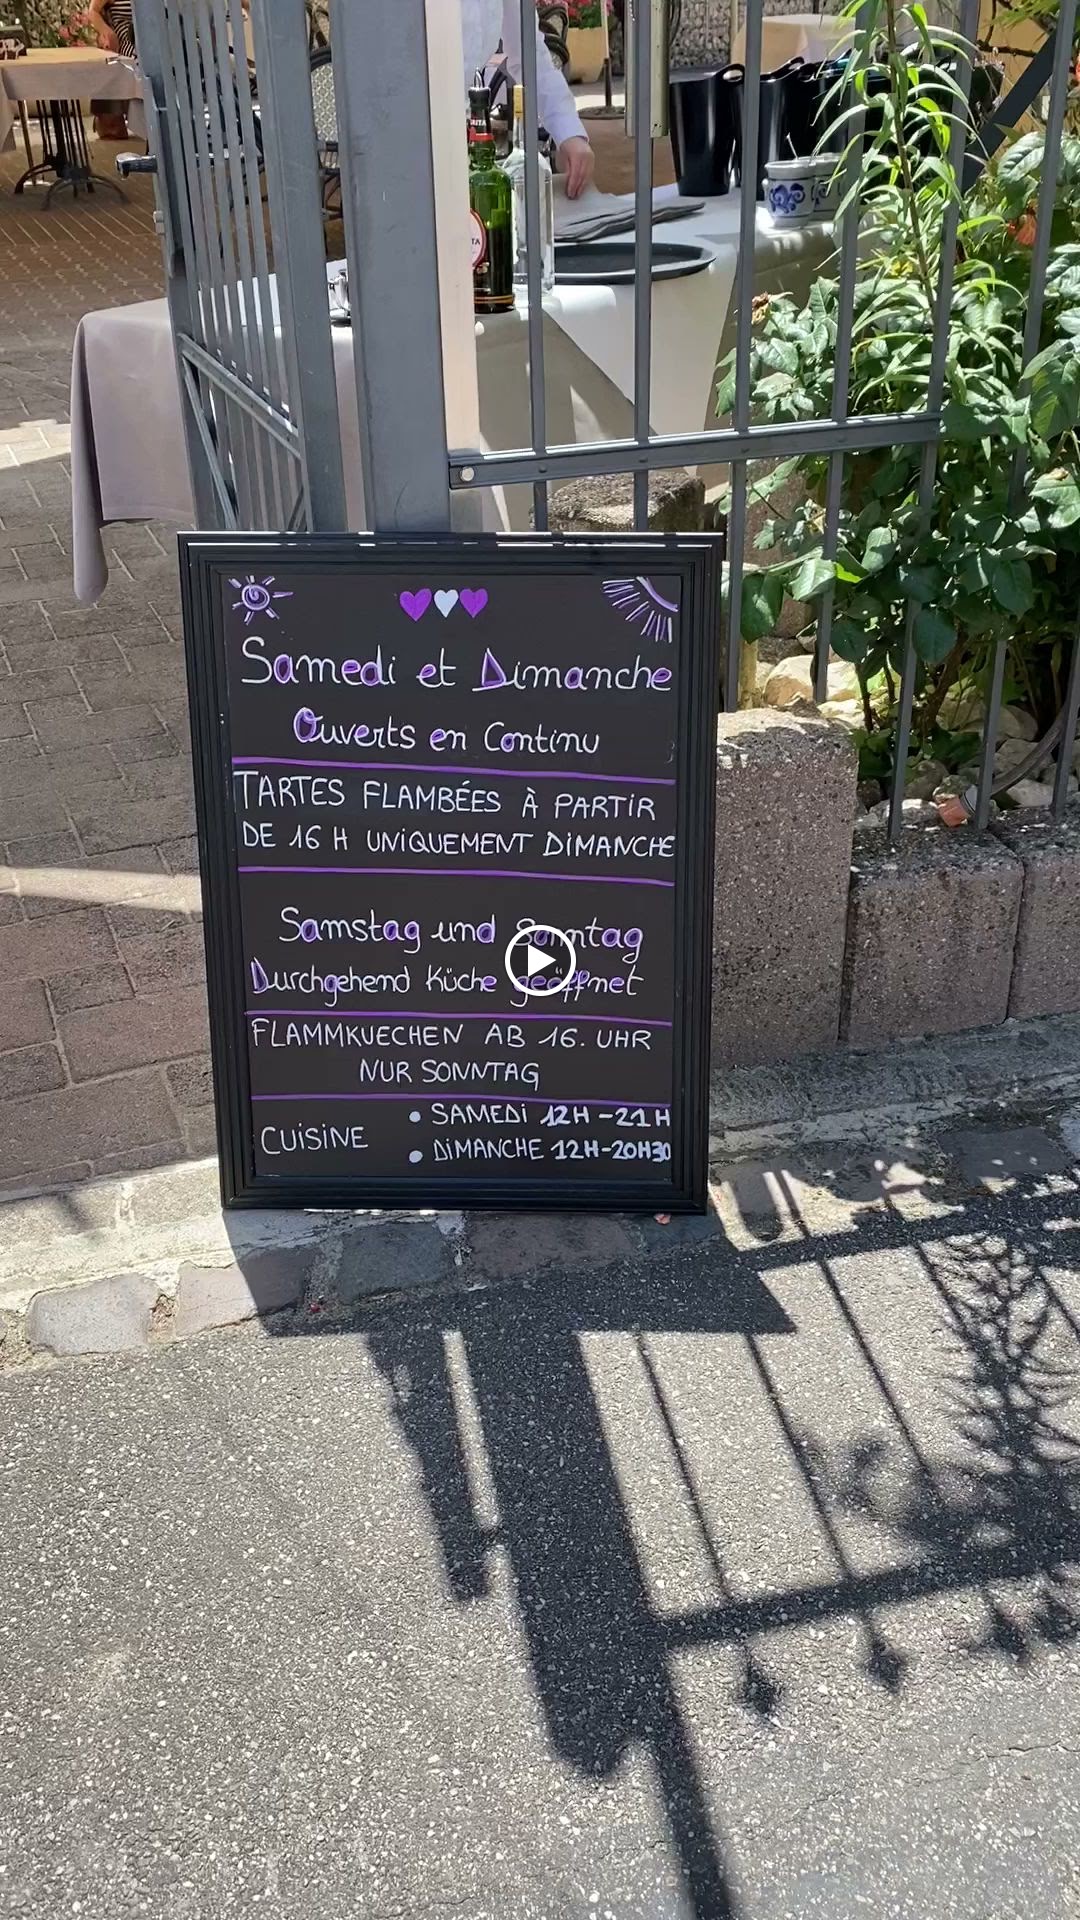 Samedi et Dimanche
Ouverts en Continu
TARTES FLAMBÉES À PARTIR
DE 16 H UNIQUEMENT DIMANCHE
Samstag und Sonntag
Durchgehend Küche geöffnet
FLAMMKUECHEN AB 16. UHR
NUR SONNTAG
CUISINE
• SAMEDI 12H - 21H
• DIMANCHE 12H-20H30